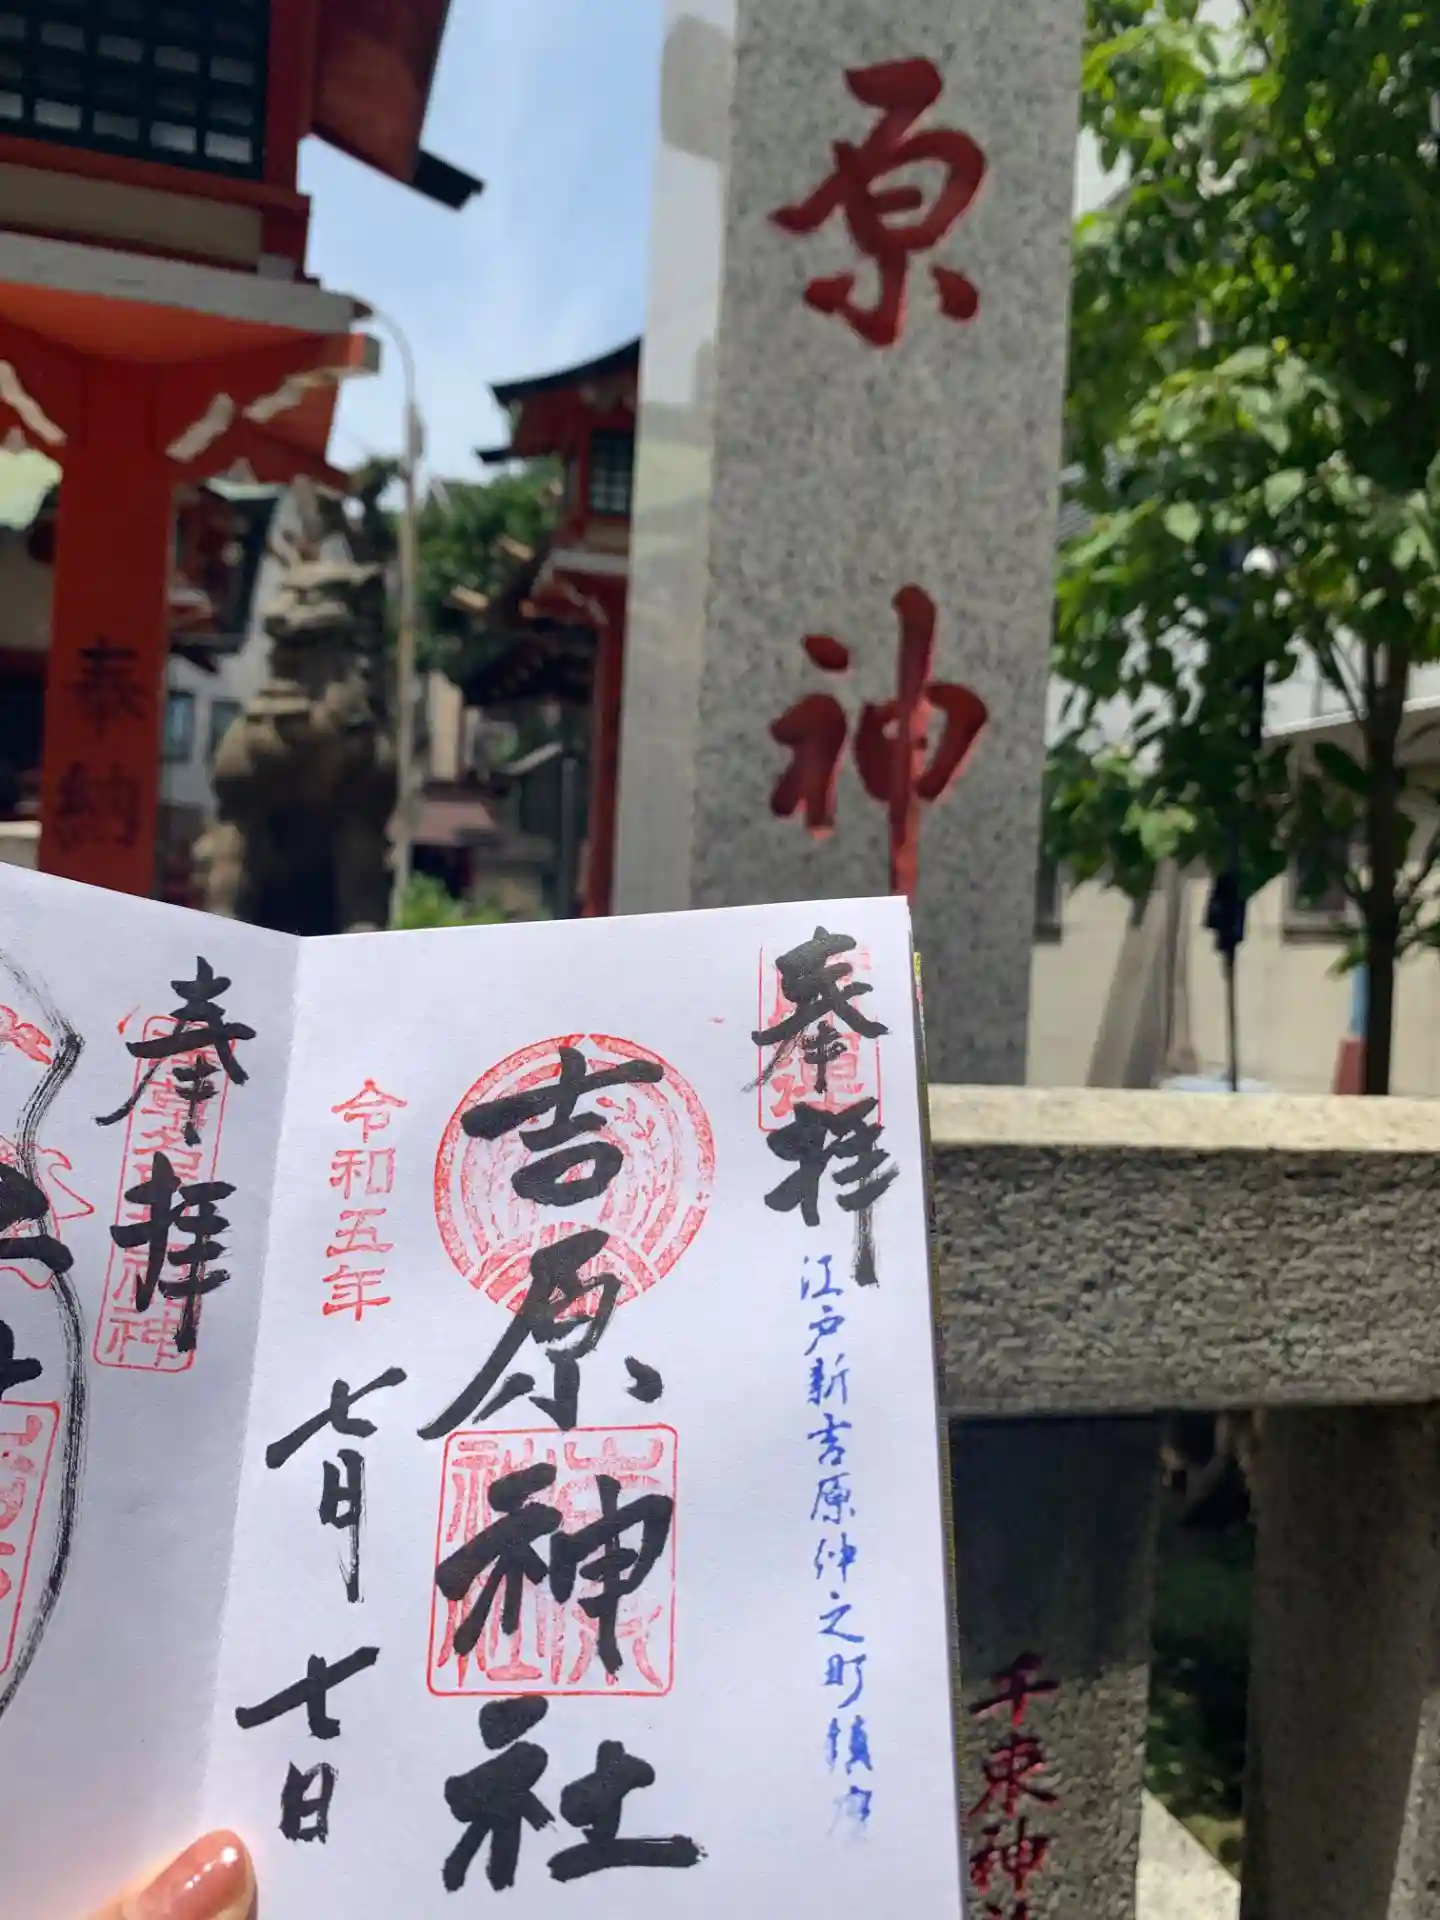 原神
奉納
奉拝
開運
江戸新吉原仲之町鎮座
吉原神社
令和五年
七月七日
奉拝
千束神